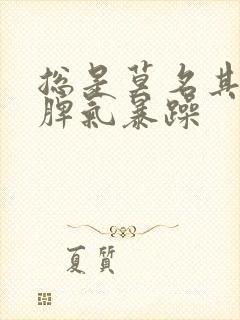 總是莫名其
脾氣暴躁
夏質